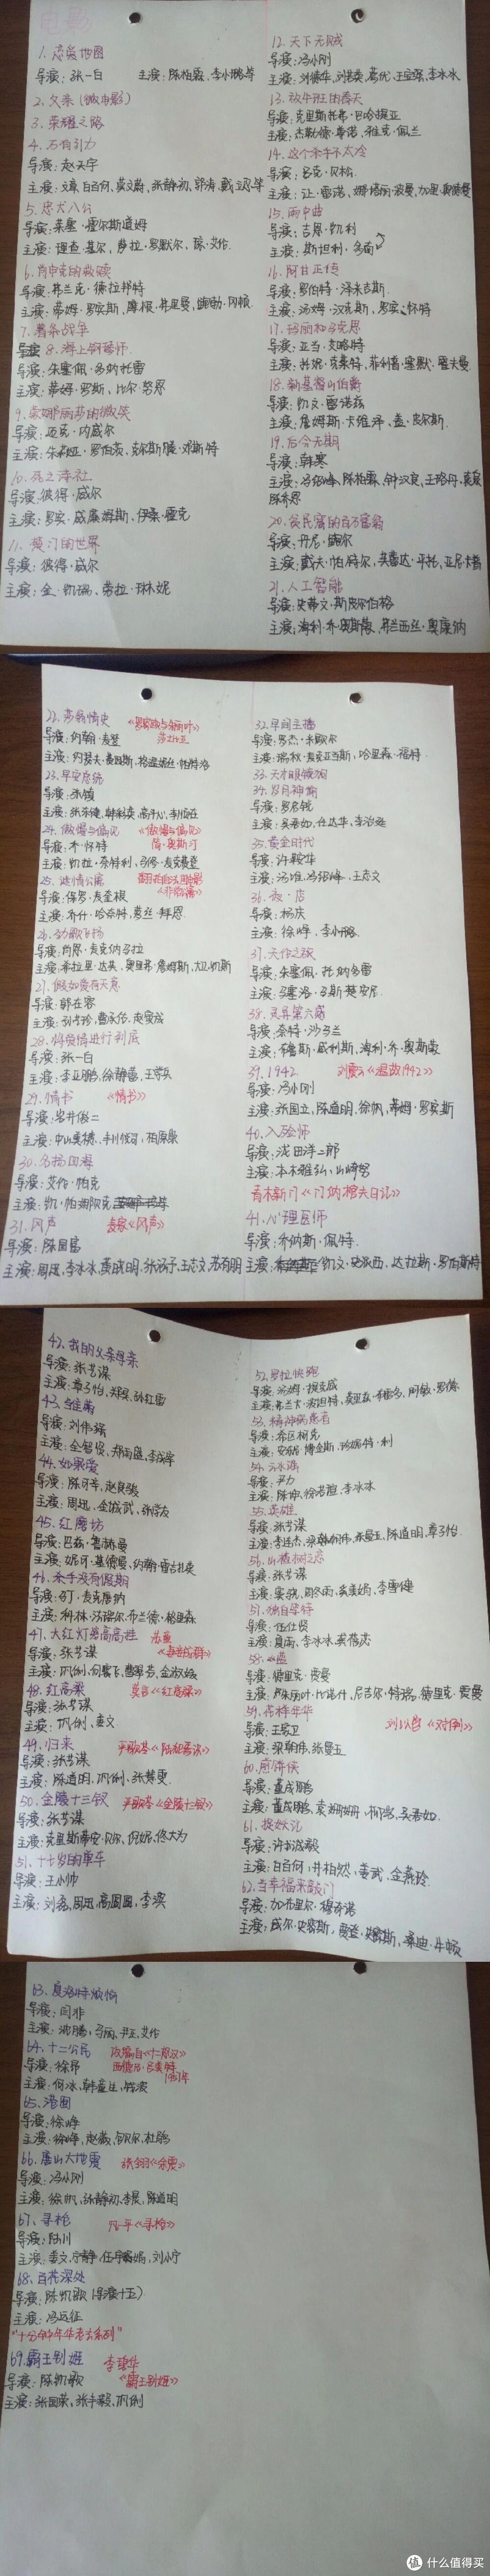 电影
1. 恋爱地图
导演：张一白 主演：陈柏霖、李小璐等
2. 父亲（微电影）
3. 荣耀之路
4. 万有引力
导演：赵天宇
主演：文章、白百何、莫文蔚、张静初、郭涛、戴立忍等
5. 忠犬八公
导演：莱塞·霍尔斯道姆
主演：理查·基尔、萨拉·罗默尔、琼·艾伦.
6. 肖申克的救赎
导演：弗兰克·德拉邦特
主演：蒂姆·罗宾斯、摩根·弗里曼、鲍勃·冈顿.
7. 薯条战争
8. 海上钢琴师.
导演：朱塞佩·多纳托雷
主演：蒂姆·罗斯、比尔·努恩
9. 蒙娜丽莎的微笑
导演：迈克·内威尔
主演：朱莉亚·罗伯茨、克尔斯滕·邓斯特
10. 死亡诗社
导演：彼得·威尔
主演：罗宾·威廉姆斯、伊桑·霍克
11. 楚门的世界
导演：彼得·威尔
主演：金·凯瑞、劳拉·琳妮
12. 天下无贼
导演：冯小刚
主演：刘德华、刘若英、葛优、王宝强、李冰冰
13. 放牛班的春天
导演：克里斯托弗·巴哈提亚
主演：杰勒德·尊诺、雅克·佩兰
14. 这个杀手不太冷
导演：吕克·贝松.
主演：让·雷诺、娜塔丽·波曼、加里·奥德曼
15. 雨中曲
导演：吉恩·凯利
主演：斯坦利·多南
16. 阿甘正传
导演：罗伯特·泽米吉斯
主演：汤姆·汉克斯、罗宾·怀特
17. 玛丽和马克思
导演：亚当·艾略特
主演：托妮·克莱特、菲利普·塞默·霍夫曼
18. 新基督山伯爵
导演：凯文·雷诺兹
主演：詹姆斯·卡维泽、盖·皮尔斯.
19. 后会无期
导演：韩寒
主演：冯绍峰、陈柏霖、钟汉良、王珞丹、袁泉
陈乔恩
20. 贫民窟的百万富翁
导演：丹尼·鲍尔
主演：戴夫·帕特尔、芙蕾达·平托、亚尼·卡普
21. 人工智能
导演：史蒂文·斯皮尔伯格
主演：海利·乔·奥斯蒙、弗兰西丝·奥康纳
22. 莎翁情史 《罗密欧与朱丽叶》
莎士比亚
导演：约翰·麦登
主演：约瑟夫·费因斯、格温妮丝·帕特洛
23. 早安唐纳
导演：张镇
24. 傲慢与偏见 《傲慢与偏见》
简·奥斯汀
导演：乔·怀特
主演：凯拉·奈特利、马修·麦克费登
25. 迷情公寓
导演：保罗·麦奎根
主演：乔什·哈奈特、萝丝·拜恩.
26. 劲歌飞扬
导演：肖恩·麦克纳马拉
主演：希拉里·达芙、奥里弗·詹姆斯、大卫·凯斯
27. 假如爱有天意
导演：郭在容
主演：孙艺珍、曹承佑、赵寅成
28. 将爱情进行到底
导演：张一白
主演：李亚鹏、徐静蕾、王学兵
29. 情书 《情书》
导演：岩井俊二
主演：中山美穗、丰川悦司、柏原崇
30. 名扬四海
导演：艾伦·帕克
31. 风声 麦家《风声》
导演：陈国富
主演：周迅、李冰冰、黄晓明、张涵予、王志文、苏有朋
32. 早间主播
导演：罗杰·米歇尔
主演：瑞秋·麦克亚当斯、哈里森·福特.
33. 天才眼镜狗
34. 岁月神偷
导演：罗启锐
主演：吴君如、任达华、李治廷
35. 黄金时代
导演：许鞍华
主演：汤唯、冯绍峰、王志文
36. 夜·店
导演：杨庆
主演：徐峥、李小璐.
37. 天伦之旅
导演：朱塞佩·托纳多雷
主演：马塞洛·马斯楚安尼
38. 灵异第六感
导演：奈特·沙马兰
主演：布鲁斯·威利斯、海利·乔·奥斯蒙
39. 1942 刘震云《温故1942》
导演：冯小刚
主演：张国立、陈道明、徐帆、蒂姆·罗宾斯
40. 入殓师
导演：泷田洋二郎
主演：本木雅弘、山崎努
青木新门《门纳棺夫日记》
41. 心理医师
导演：乔纳斯·佩特.
主演：凯文·史派西、达拉斯·罗伯斯特
42. 我的父亲母亲
导演：张艺谋
主演：章子怡、郑昊、孙红雷
43. 雏菊
导演：刘伟强
主演：全智贤、郑雨盛、李成宰
44. 如果爱
导演：陈可辛、赵良骏
主演：周迅、金城武、张学友
45. 红磨坊
导演：巴兹·鲁赫曼
主演：妮可·基德曼、约翰·雷吉扎莫
46. 杀手没有假期
导演：马丁·麦克唐纳
主演：科林·法瑞尔、布兰德·格里森
47. 大红灯笼高高挂 苏童
《妻妾成群》
导演：张艺谋
主演：巩俐、何赛飞、曹翠芬、金淑媛
48. 红高粱 莫言《红高粱》
导演：张艺谋
主演：巩俐、姜文.
49. 归来 严歌苓《陆犯焉识》
导演：张艺谋
主演：陈道明、巩俐、张慧雯.
50. 金陵十三钗 严歌苓《金陵十三钗》
导演：张艺谋
主演：克里斯蒂安·贝尔、倪妮、佟大为
51. 十七岁的单车
导演：王小帅
主演：刘磊、周迅、高圆圆、李滨
52. 罗拉快跑
导演：汤姆·提克威
53. 精神病患者
导演：希区柯克
主演：安东尼·博金斯、珍妮特·利
54. 云水谣
导演：尹力
主演：陈坤、徐若瑄、李冰冰
55. 英雄
导演：张艺谋
主演：李连杰、梁朝伟、张曼玉、陈道明、章子怡.
56. 山楂树之恋
导演：张艺谋
主演：窦骁、周冬雨、奚美娟、李雪健
57. 独自等待
导演：伍仕贤
主演：夏雨、李冰冰、龚蓓苾
58. 心盗
59. 花样年华 刘以鬯《对倒》
导演：王家卫
主演：梁朝伟、张曼玉
60. 煎饼侠
导演：董成鹏
主演：董成鹏、袁姗姗、柳岩、吴君如.
61. 捉妖记
导演：许诚毅
主演：白百何、井柏然、姜武、金燕玲
62. 当幸福来敲门
导演：加布里尔·穆奇诺
主演：威尔·史密斯、贾登·史密斯、桑迪·牛顿
63. 夏洛特烦恼
导演：闫非
主演：沈腾、马丽、尹正、艾伦
64. 十二公民 改编自《十二怒汉》
西德尼·吕美特
1957年
导演：徐昂
主演：何冰、韩童生、钱波
65. 港囧
导演：徐峥
主演：徐峥、赵薇、包贝尔、杜鹃
66. 唐山大地震 张翎《余震》
导演：冯小刚
主演：徐帆、张静初、李晨、陈道明
67. 寻枪 凡一平《寻枪》
导演：陆川
主演：姜文、宁静、伍宇娟、刘小宁
68. 百花深处
导演：陈凯歌（导演十五）
主演：冯远征
“十分钟年华老去系列”
69. 霸王别姬 李碧华
《霸王别姬》
导演：陈凯歌
主演：张国荣、张丰毅、巩俐
值 什么值得买